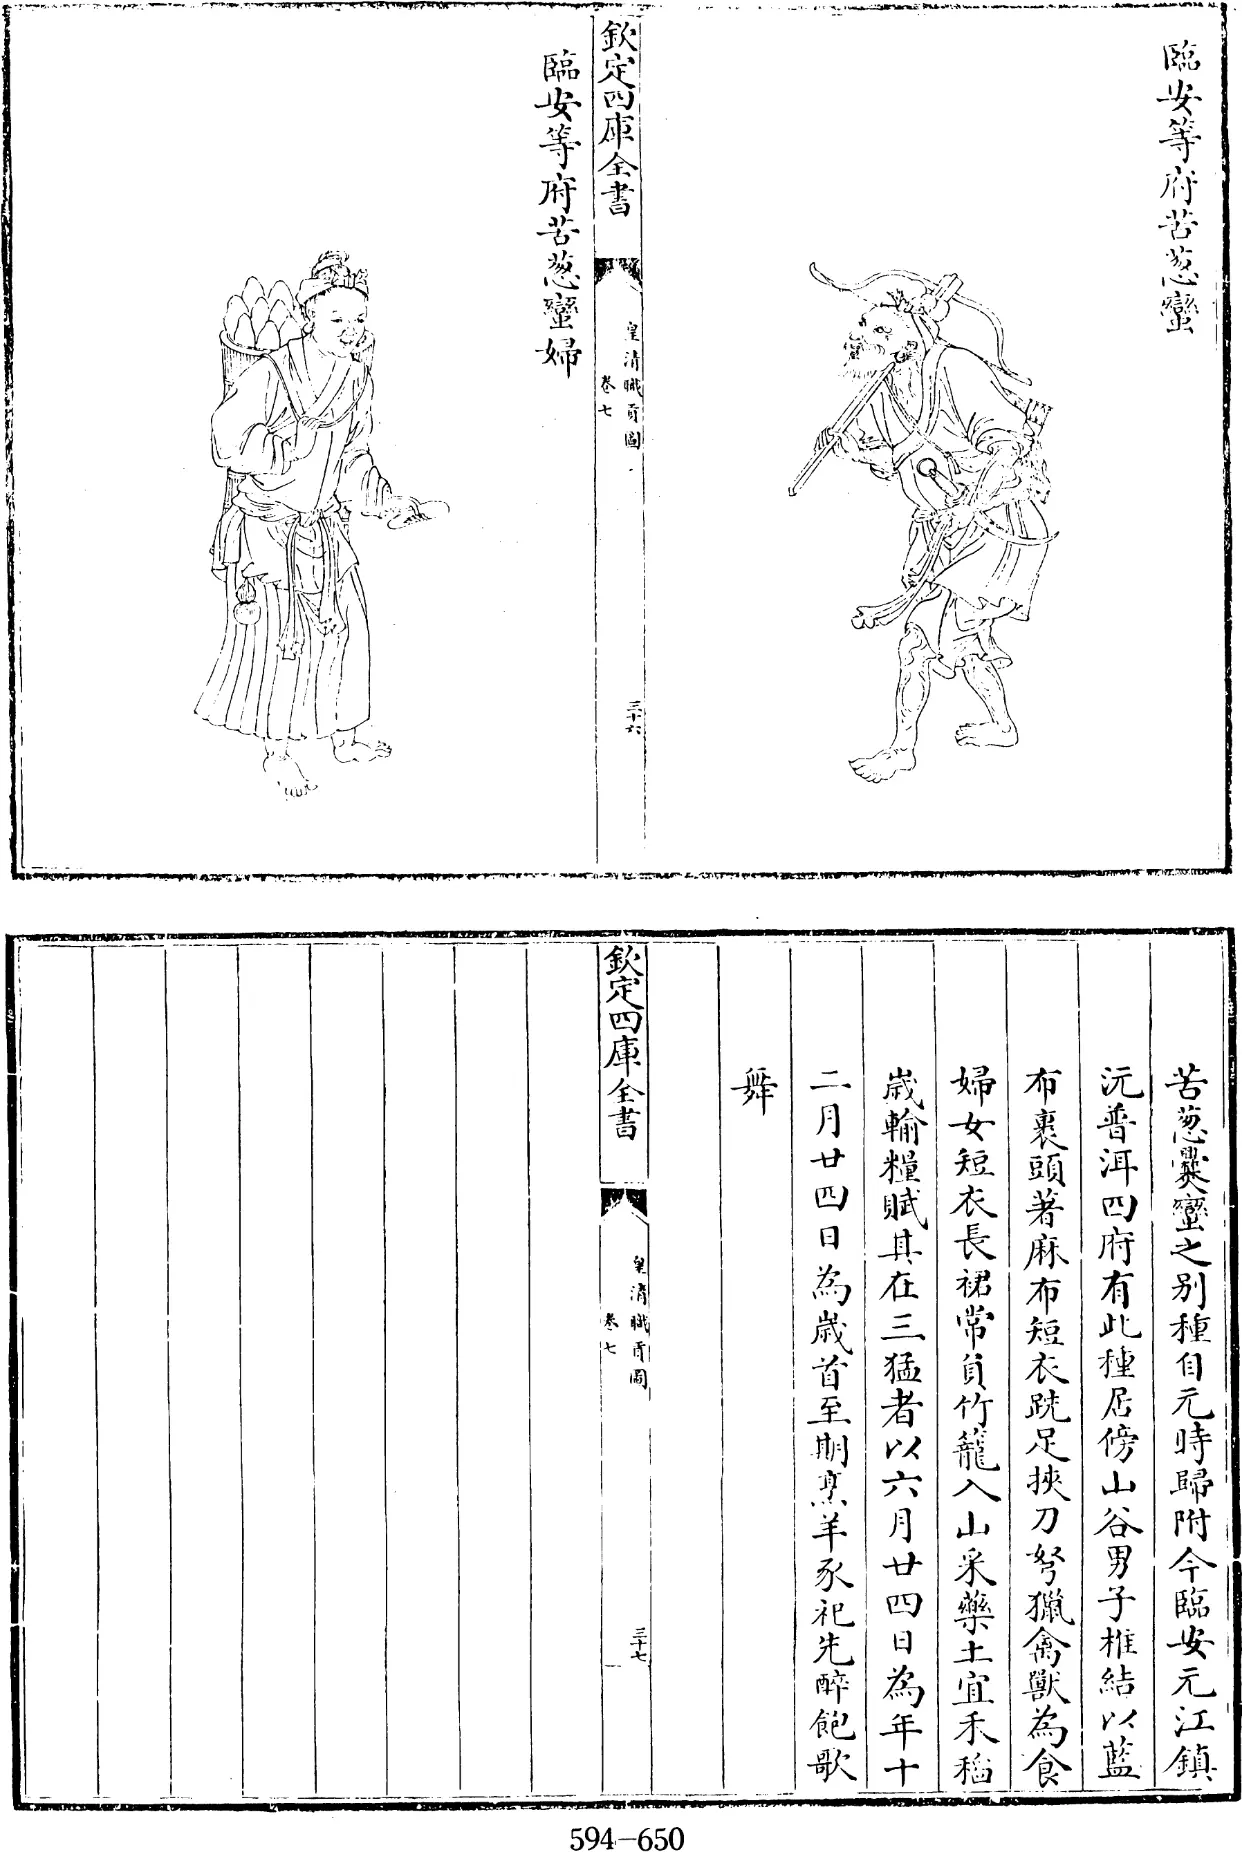 臨安等府苦葱蠻
欽定四庫全書
皇清職貢圖
卷七
三十六
臨安等府苦葱蠻婦
苦葱爨蠻之别種自元時歸附今臨安元江鎮
沅普洱四府有此種居傍山谷男子椎結以藍
布裹頭著麻布短衣跣足挾刀弩獵禽獸為食
婦女短衣長裙常負竹籠入山采藥土宜禾稻
歲輸糧賦其在三猛者以六月廿四日為年十
二月廿四日為歲首至期烹羊豕祀先醉飽歌
舞
欽定四庫全書
皇清職貢圖
卷七
三十七
594-650